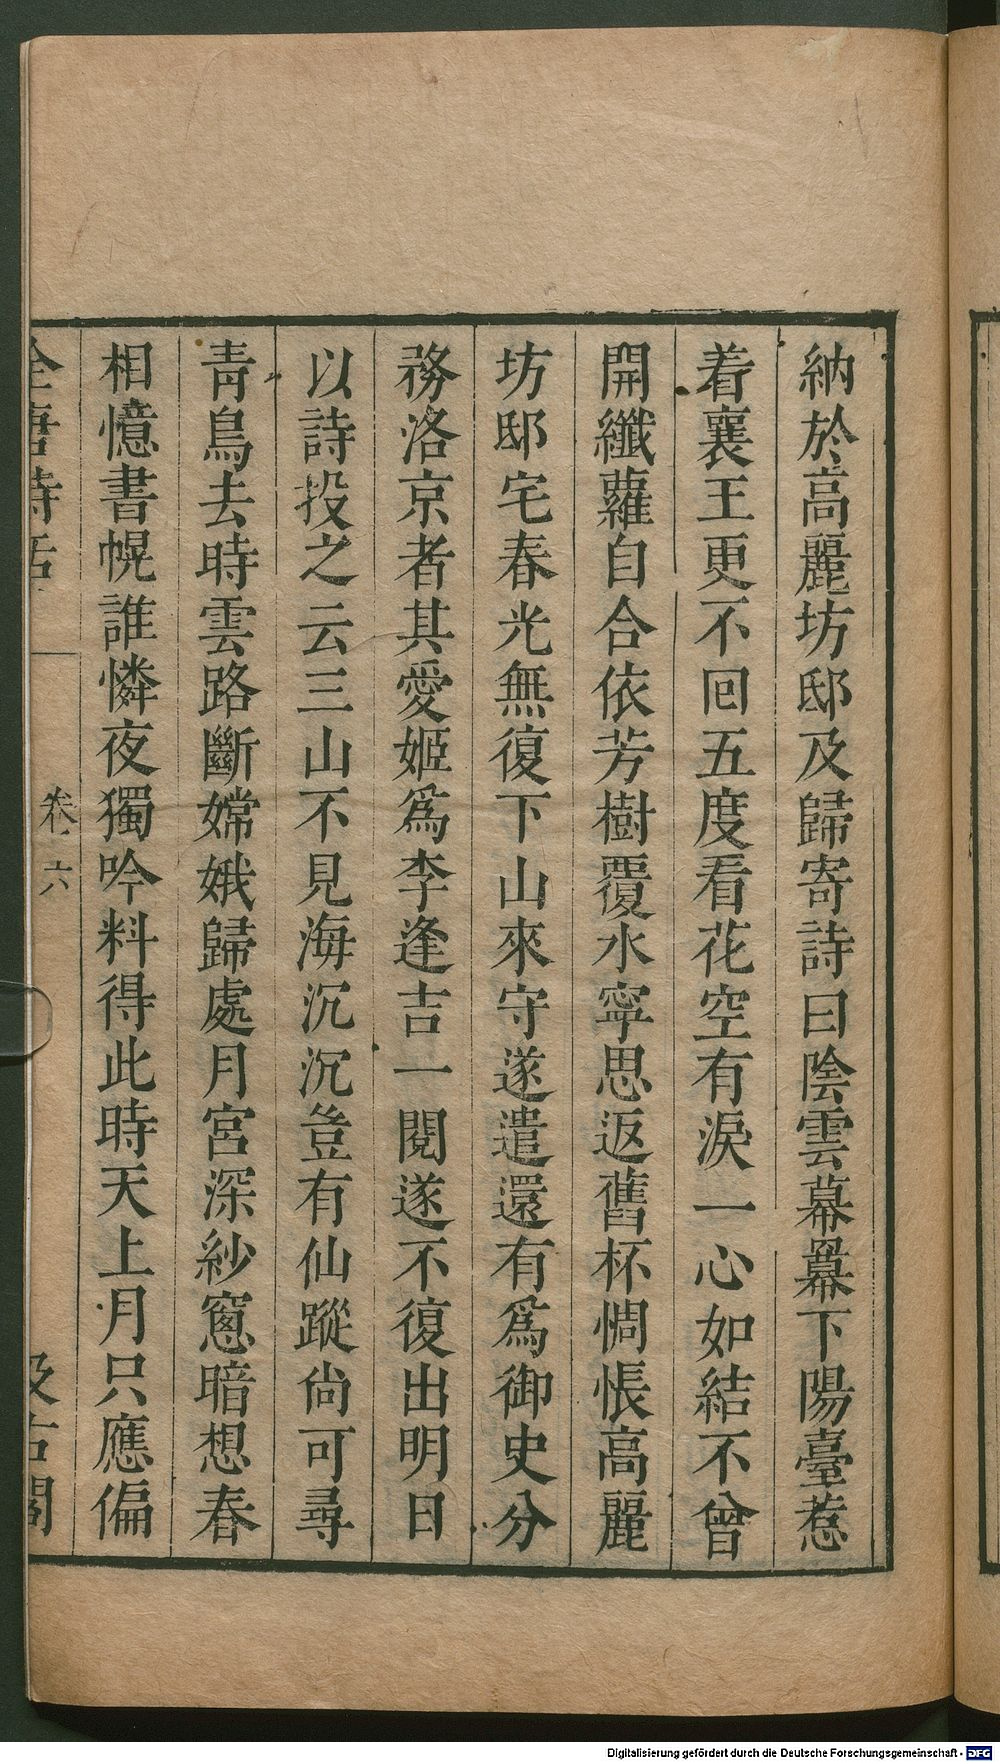 納於高麗坊邸及歸寄詩曰陰雲幕羃下陽臺惹
着襄王更不回五度看花空有淚一心如結不曾
開纖蘿自合依芳樹覆水寧思返舊杯惆悵高麗
坊邸宅春光無復下山來守遂遣還有爲御史分
務洛京者其愛姬爲李逢吉一閱遂不復出明日
以詩投之云三山不見海沉沉豈有仙蹤尚可尋
青鳥去時雲路斷嫦娥歸處月宮深紗窻暗想春
相憶書幌誰憐夜獨吟料得此時天上月只應偏
全唐詩話
卷六
汲古閣
Digitalisierung gefördert durch die Deutsche Forschungsgemeinschaft - DFG